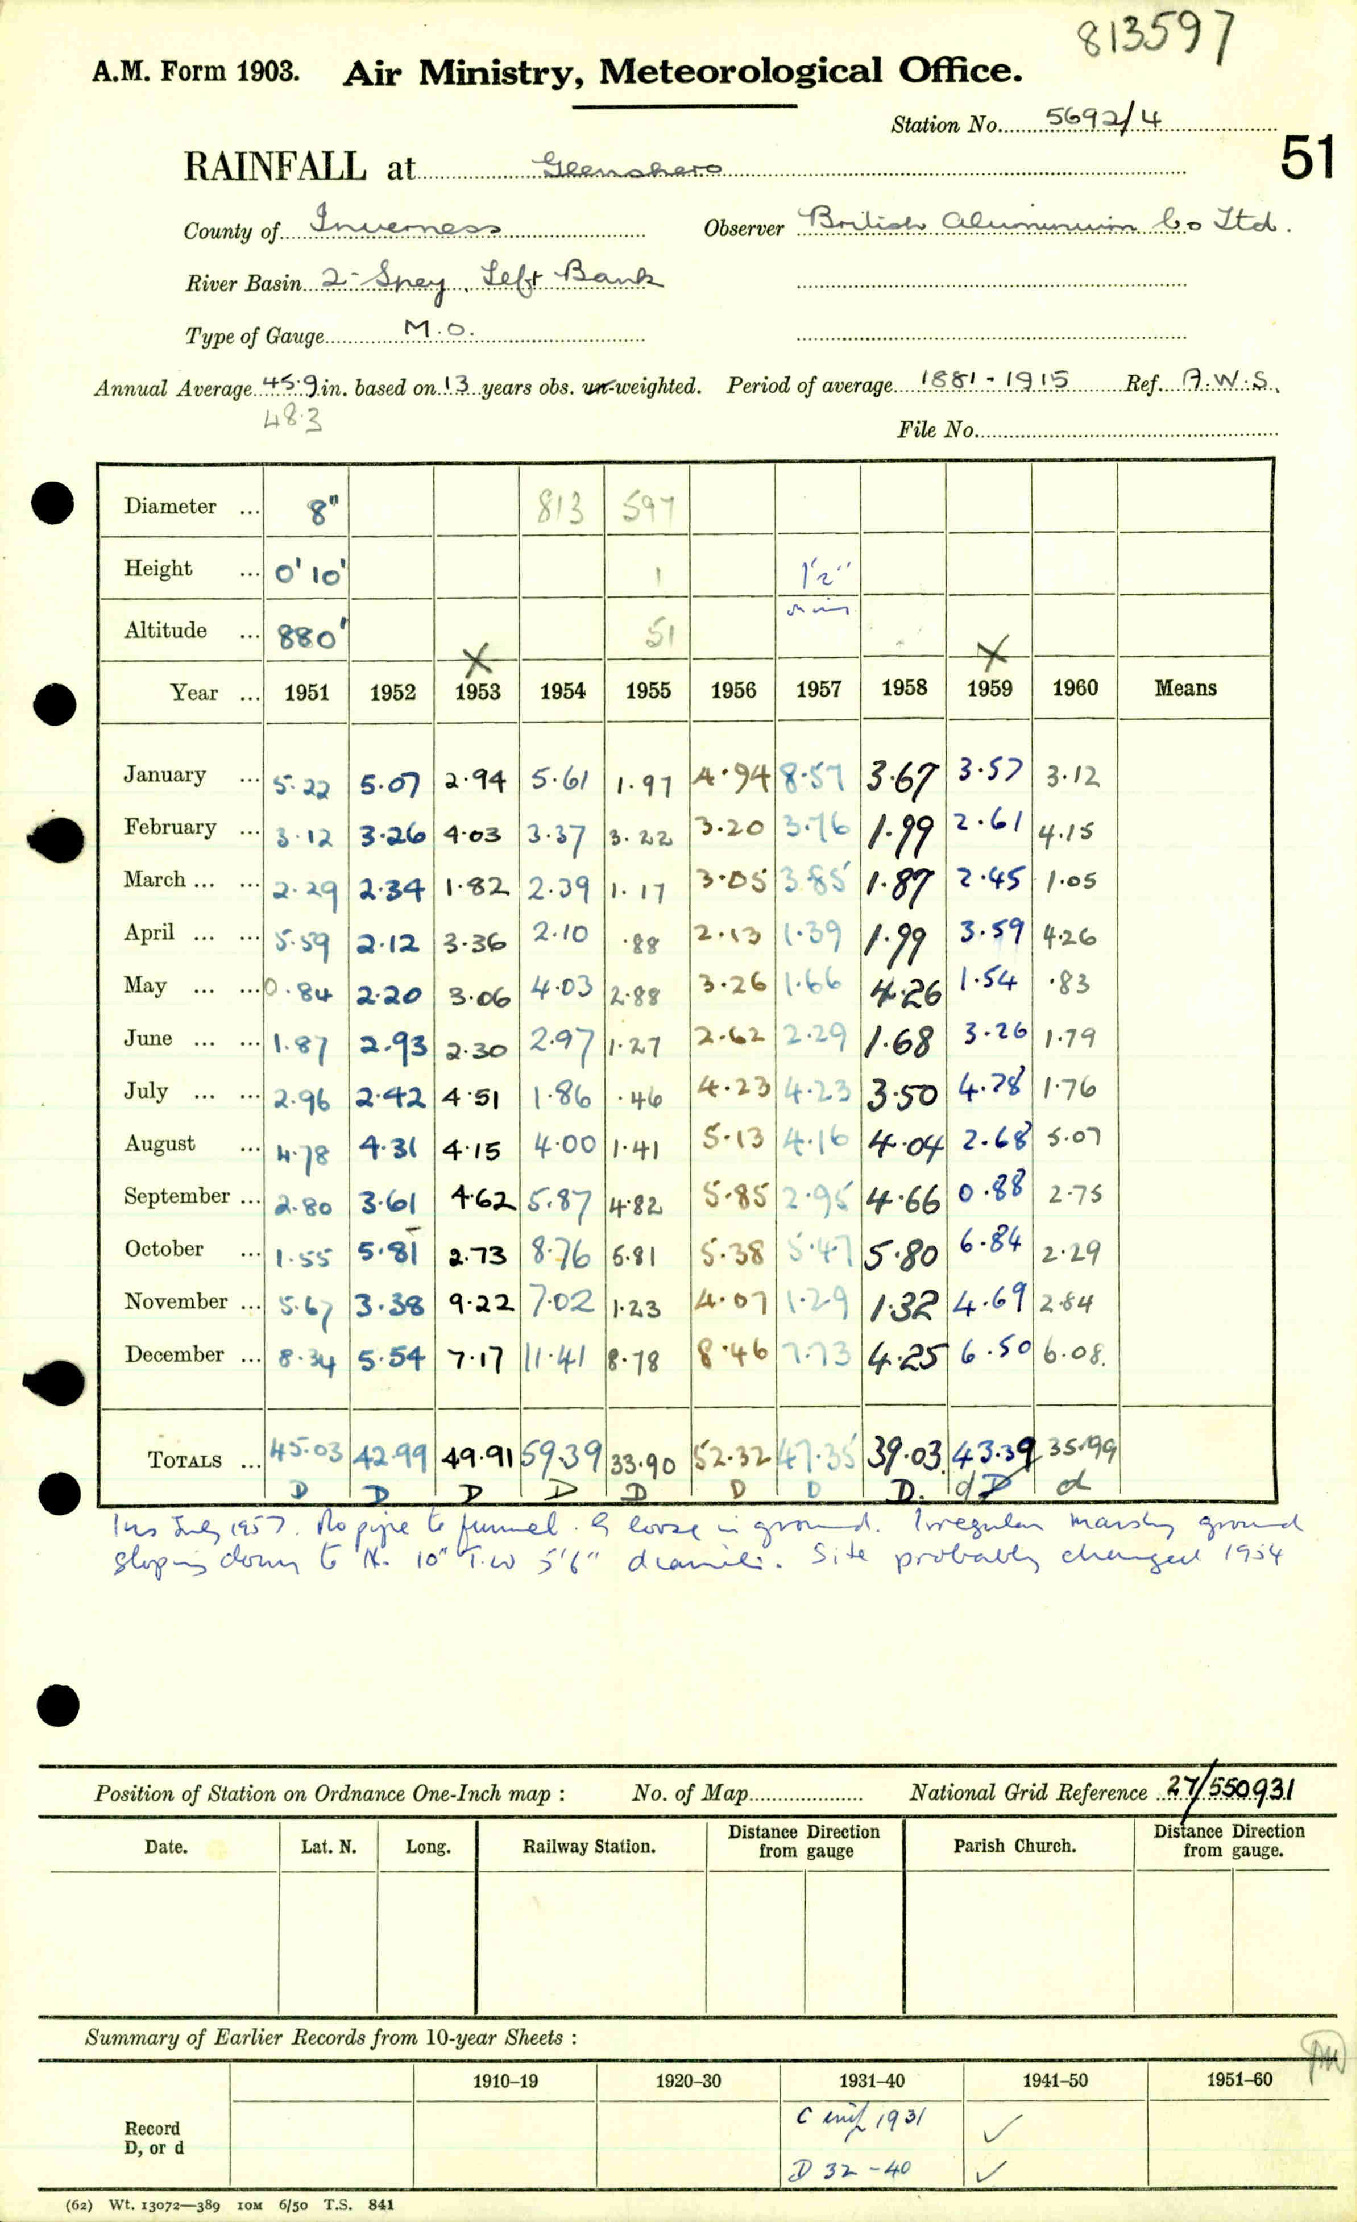 813597
A.M. Form 1903. Air Ministry, Meteorological Office.
Station No. 5692/4
51
RAINFALL at Glenshero
County of Inverness Observer British Aluminium Co Ltd.
River Basin 2-Spey, Left Bank
Type of Gauge M.O.
Annual Average 45.9 in. based on 13 years obs. un-weighted. Period of average 1881-1915 Ref. A.W.S.
48.3
File No.
Diameter ... 8" 813 597
Height ... 0' 10" 1 1'2"
Altitude ... 880' 51
X X
Year ... 1951 1952 1953 1954 1955 1956 1957 1958 1959 1960 Means
January ... 5.22 5.07 2.94 5.61 1.97 4.94 8.57 3.67 3.57 3.12
February ... 3.12 3.26 4.03 3.37 3.22 3.20 3.76 1.99 2.61 4.15
March ... ... 2.29 2.34 1.82 2.39 1.17 3.05 3.85 1.87 2.45 1.05
April ... ... 5.59 2.12 3.36 2.10 .88 2.13 1.39 1.99 3.59 4.26
May ... ... 0.84 2.20 3.06 4.03 2.88 3.26 1.66 4.26 1.54 .83
June ... ... 1.87 2.93 2.30 2.97 1.27 2.62 2.29 1.68 3.26 1.79
July ... ... 2.96 2.42 4.51 1.86 .46 4.23 4.23 3.50 4.78 1.76
August ... 4.78 4.31 4.15 4.00 1.41 5.13 4.16 4.04 2.68 5.07
September ... 2.80 3.61 4.62 5.87 4.82 5.85 2.95 4.66 0.88 2.75
October ... 1.55 5.81 2.73 8.76 5.81 5.38 5.47 5.80 6.84 2.29
November ... 5.67 3.38 9.22 7.02 1.23 4.07 1.29 1.32 4.69 2.84
December ... 8.34 5.54 7.17 11.41 8.78 8.46 7.73 4.25 6.50 6.08.
TOTALS ... 45.03 42.99 49.91 59.39 33.90 52.32 47.35 39.03 43.39 35.99
D D D D D D D D. d D d
Ins July 1957. No pipe to funnel. G loose in ground. Irregular marshy ground
sloping down to N. 10" T.W 5'6" diameter. Site probably changed 1954
Position of Station on Ordnance One-Inch map : No. of Map National Grid Reference 27/550931
Date. Lat. N. Long. Railway Station. Distance from gauge Direction Parish Church. Distance from gauge. Direction
Summary of Earlier Records from 10-year Sheets :
1910–19 1920–30 1931–40 1941–50 1951–60
Record D, or d C 1931 ✓
D 32-40 ✓
(62) Wt. 13072—389 10M 6/50 T.S. 841